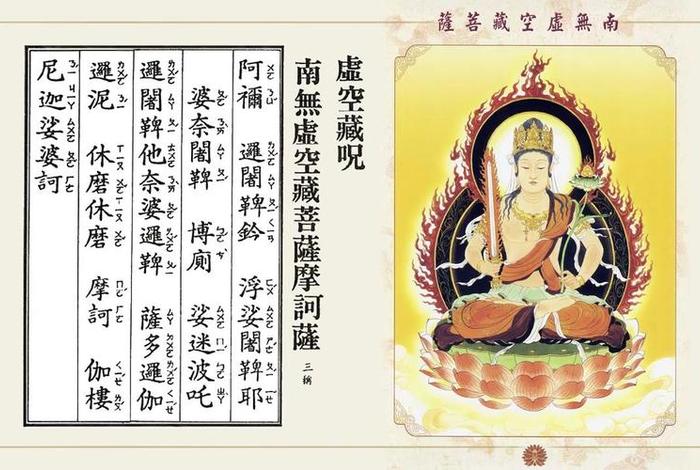 南無虛空藏菩薩
虛空藏呪
南無虛空藏菩薩摩訶薩 三稱
阿禰 邏闍鞞鈐 浮娑闍鞞耶
婆奈闍鞞 博廁 娑迷波吒
邏闍鞞他奈婆邏鞞 薩多邏伽
邏泥 休磨休磨 摩訶 伽樓
尼迦娑婆訶